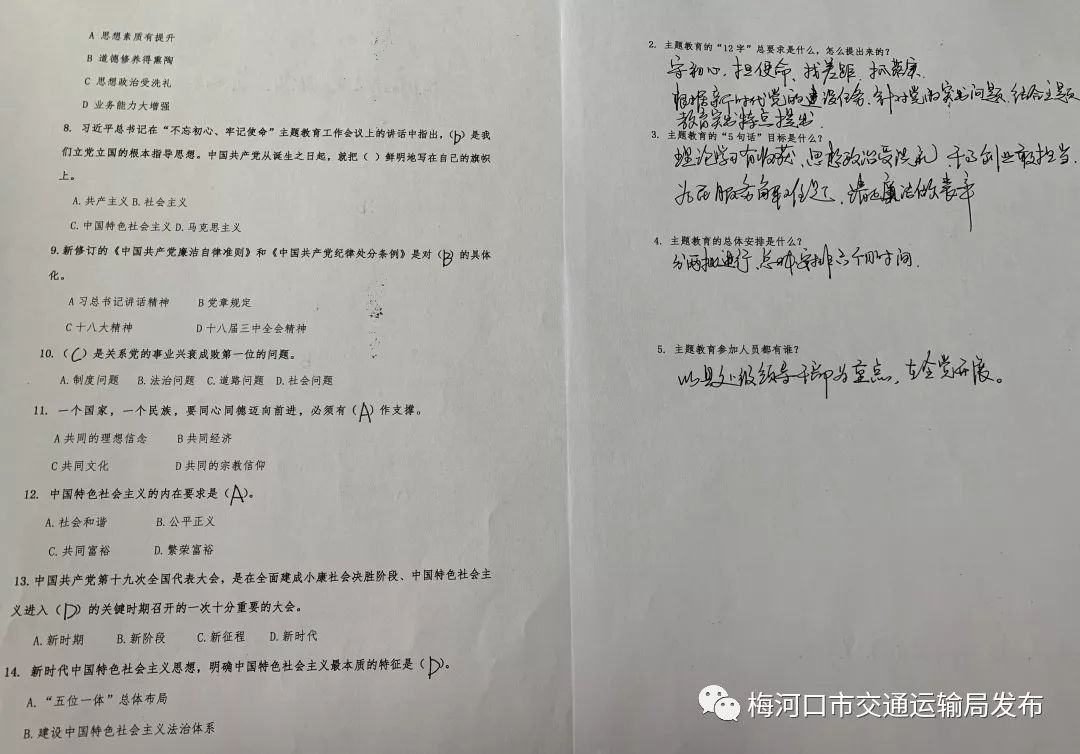 A 思想素质有提升
B 道德修养得熏陶
C 思想政治受洗礼
D 业务能力大增强
8. 习近平总书记在“不忘初心、牢记使命”主题教育工作会议上的讲话中指出，(D)是我
们立党立国的根本指导思想。中国共产党从诞生之日起，就把（ ）鲜明地写在自己的旗帜
上。
A. 共产主义 B. 社会主义
C. 中国特色社会主义 D. 马克思主义
9. 新修订的《中国共产党廉洁自律准则》和《中国共产党纪律处分条例》是对(B)的具体
化。
A 习总书记讲话精神 B 党章规定
C 十八大精神 D 十八届三中全会精神
10.（C）是关系党的事业兴衰成败第一位的问题。
A. 制度问题 B. 法治问题 C. 道路问题 D. 社会问题
11. 一个国家，一个民族，要同心同德迈向前进，必须有（A）作支撑。
A 共同的理想信念 B 共同经济
C 共同文化 D 共同的宗教信仰
12. 中国特色社会主义的内在要求是（A）。
A. 社会和谐 B. 公平正义
C. 共同富裕 D. 繁荣富裕
13. 中国共产党第十九次全国代表大会，是在全面建成小康社会决胜阶段、中国特色社会主
义进入（D）的关键时期召开的一次十分重要的大会。
A. 新时期 B. 新阶段 C. 新征程 D. 新时代
14. 新时代中国特色社会主义思想，明确中国特色社会主义最本质的特征是（D）。
A. “五位一体”总体布局
B. 建设中国特色社会主义法治体系
2. 主题教育的“12字”总要求是什么，怎么提出来的？
守初心、担使命、找差距、抓落实
根据新时代党的建设任务、针对党内突出问题、结合主题
教育实出特点提出.
3. 主题教育的“5句话”目标是什么？
理论学习有收获、思想政治受洗礼、干事创业敢担当、
为民服务解难题、清正廉洁做表率
4. 主题教育的总体安排是什么？
分两批进行、总体安排六个月时间.
5. 主题教育参加人员都有谁？
以县处级领导干部为重点，在全党开展。
梅河口市交通运输局发布